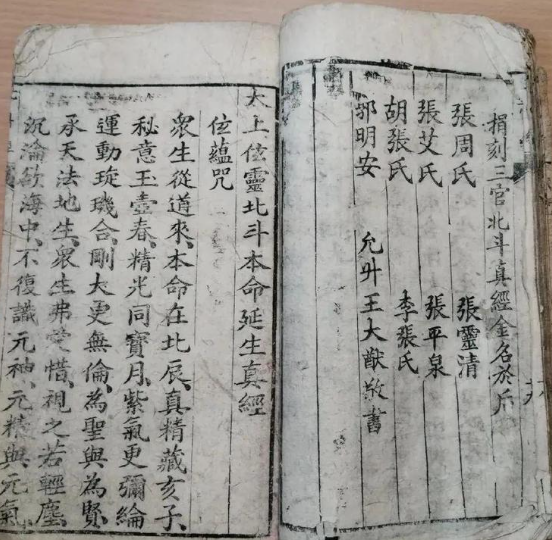 捐刻三官北斗真經金名於后
張周氏 張靈清
張艾氏 張平泉
胡張氏 李張氏
郭明安 允升王大猷敬書
太上位靈北斗本命延生真經
位蘊咒
眾生從道來、本命在北辰、真精藏亥子、
秘意玉壺春、精光同寶月、紫氣更彌綸
運動琁璣合、剛大更無倫、為聖與為賢、
承天法地生、眾生弗愛惜、視之若輕塵、
沉淪欲海中、不復識元神、元精與元氣